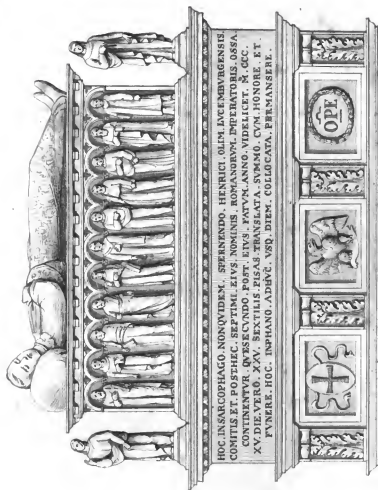 HOC. INSARCOPHAGO. NONQVIDEM. SPERNENDO. HENRICI. OLIM. LVCEMBVRGENSIS.
COMITIS. ET. POSTHEC. SEPTIMI. EIVS. NOMINIS. ROMANORVM. IMPERATORIS. OSSA.
CONTINENTVR. QVESECVNDO. POST. EIVS. FATVM. ANNO. VIDELICET. M. CCC.
XV. DIE. VERO. XXV. SEXTILIS. PISAS. TRANSLATA. SVMMO. CVM. HONORE. ET.
FVNERE. HOC. INPHANO. ADHVC. VSQ. DIEM. COLLOCATA. PERMANSERE.
OPE